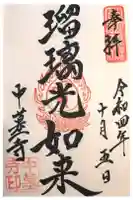 奉拝
令和四年
十月五日
瑠璃光如来
中墓寺